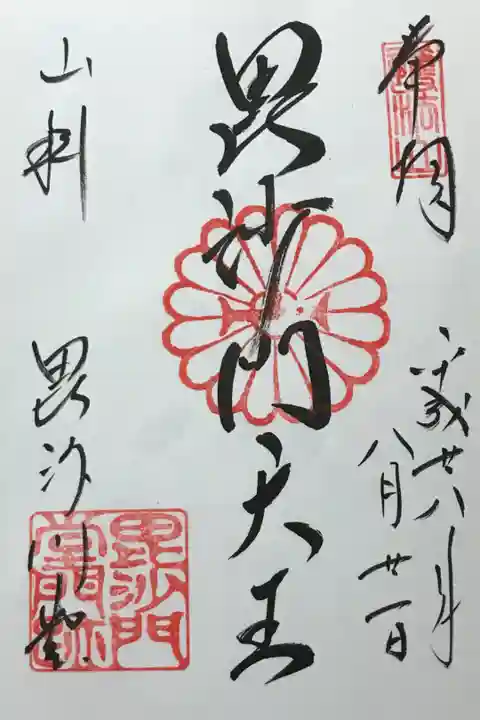 奉拝
護法山
平成廿八年
八月廿一日
毘沙門天王
山科
毘沙門堂
毘沙門堂印